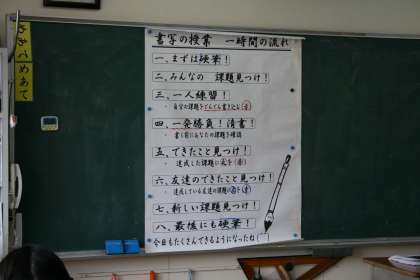 書写の授業 一時間の流れ
一、まずは硬筆！
二、みんなの 課題見つけ！
三、一人練習！
・自分の課題をどんどん書き込む(青)
四、一発勝負！清書！
・書く前にあなたの課題を確認
五、できたこと見つけ！
・達成した課題に丸を(赤)
六、友達のできたこと見つけ！
・達成している友達の課題に
七、新しい課題見つけ！
八、最後にも硬筆！
今日もたくさんできるようになったね
めあて